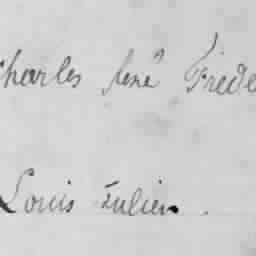 Charles René Frede
Louis Julien.